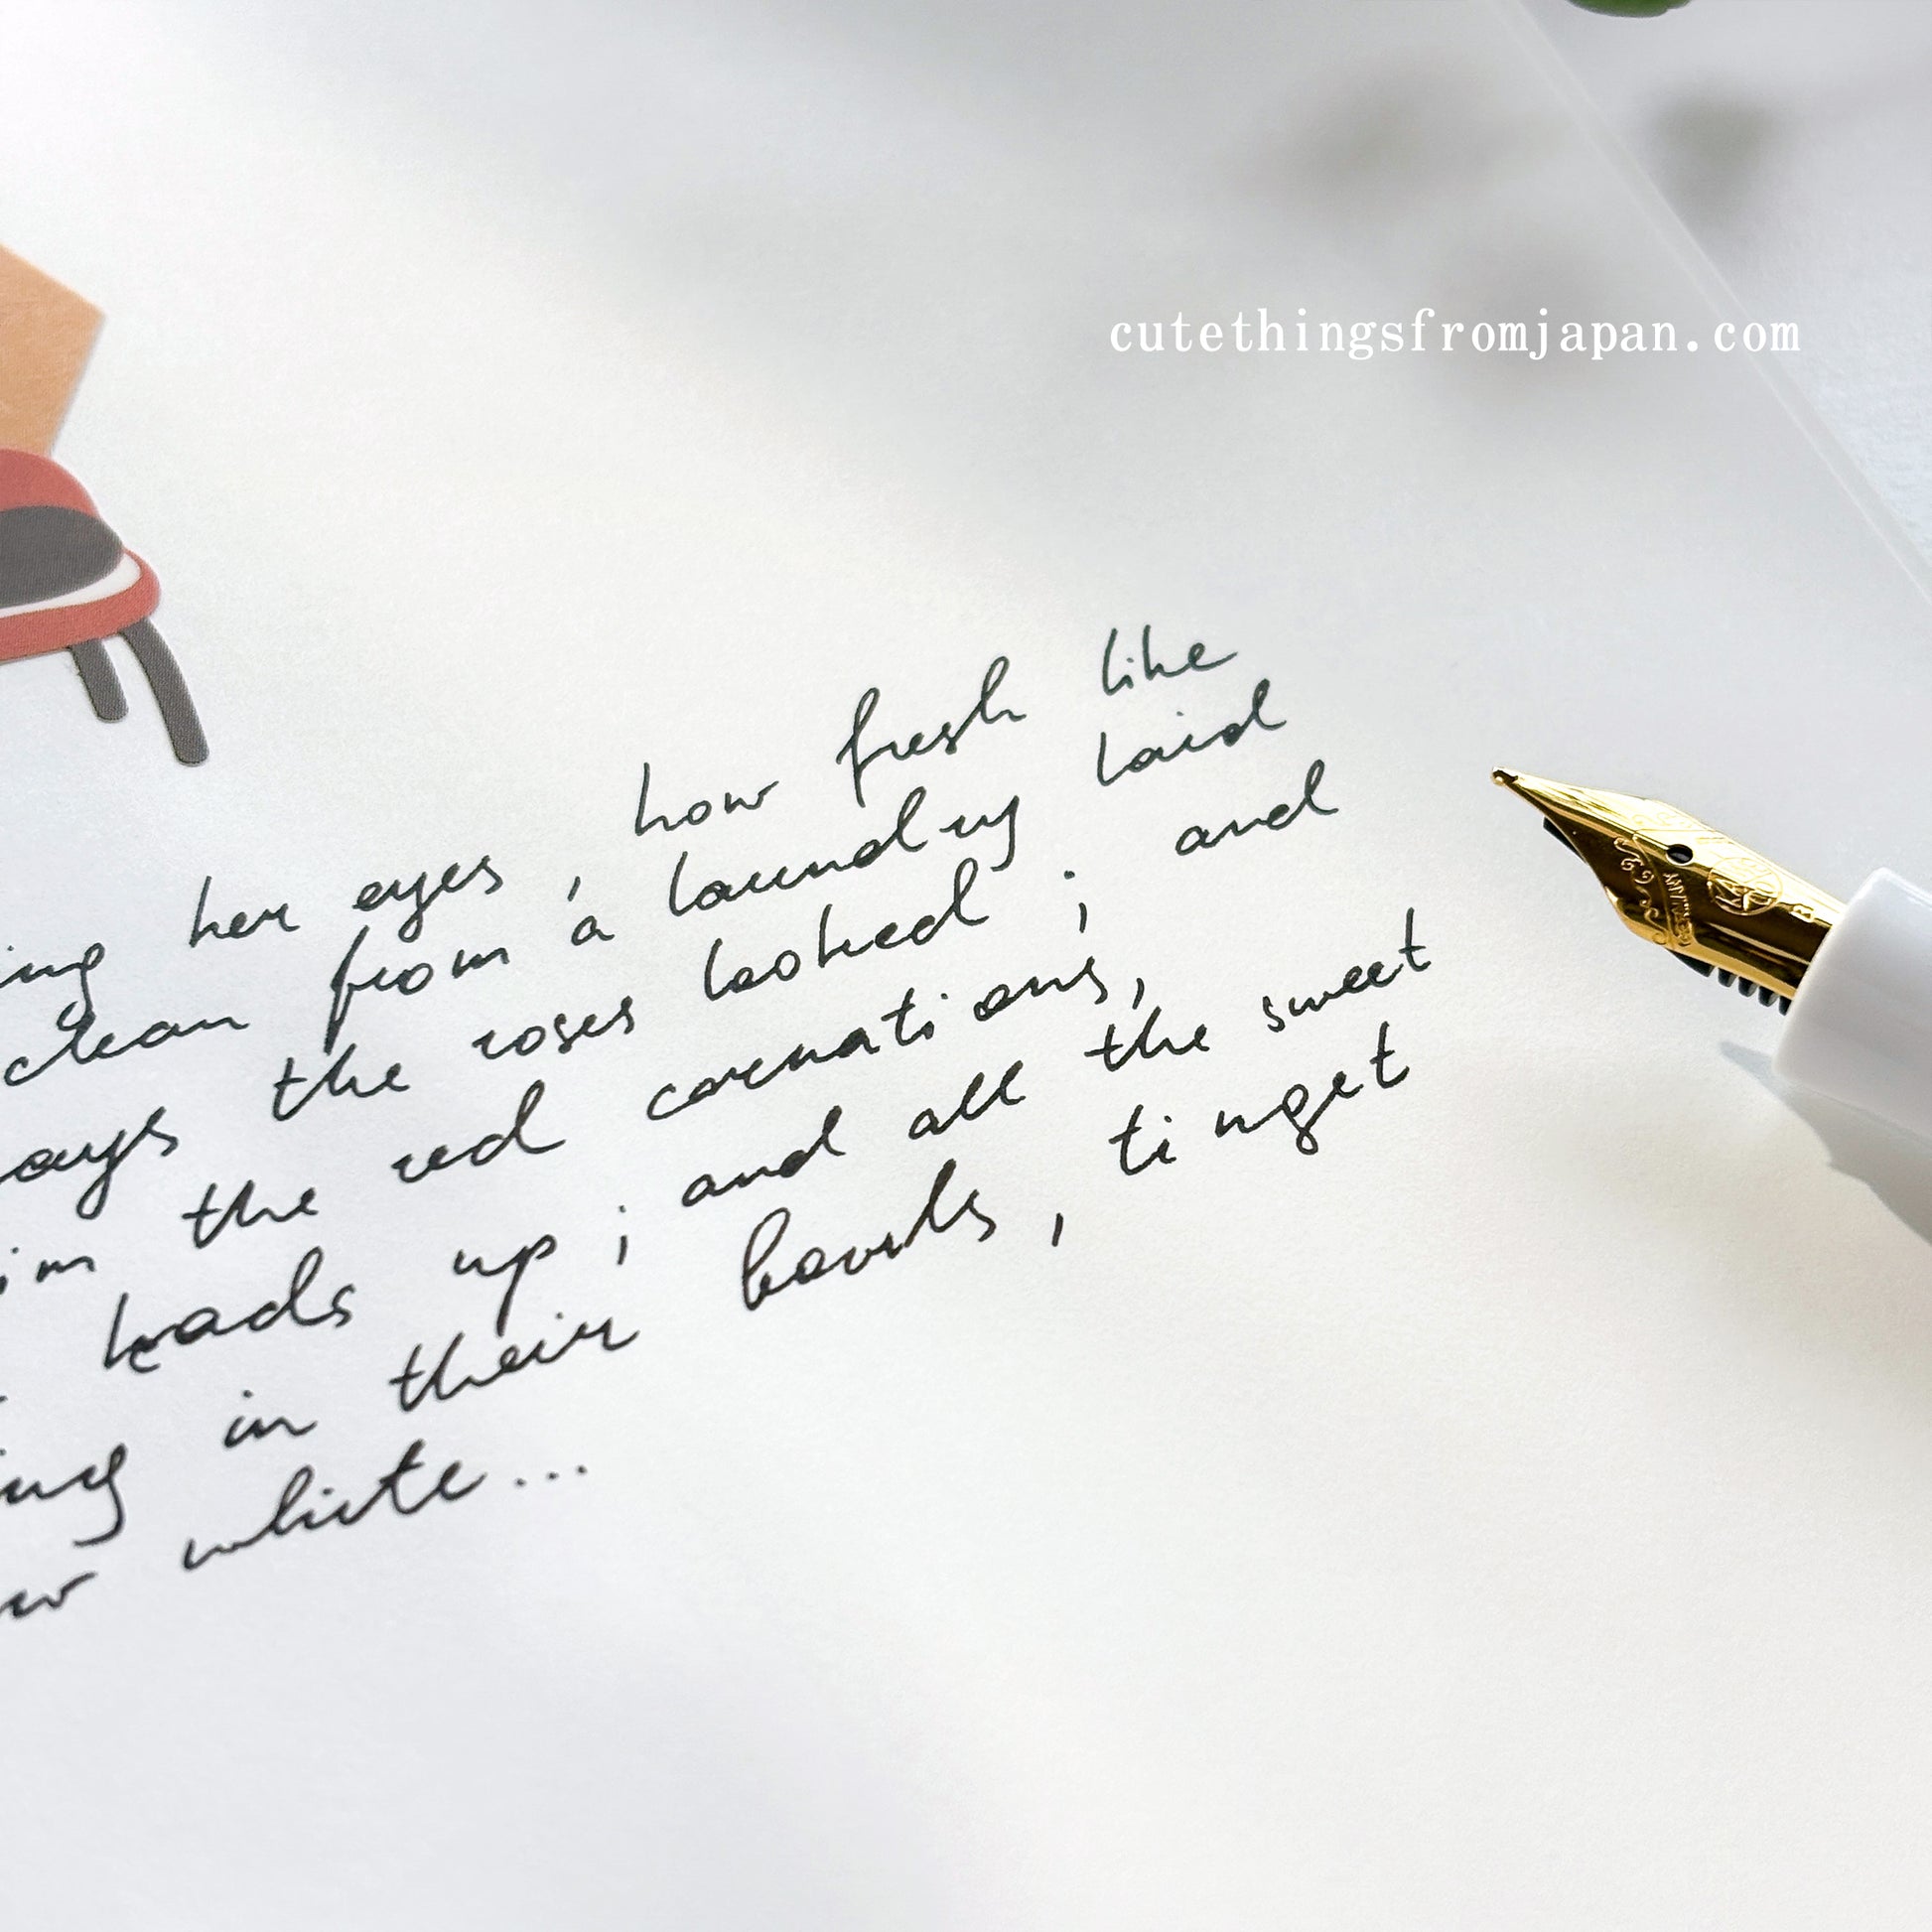 cutethingsfromjapan.com
ing her eyes, how fresh like
clean from a laundry laid
ays the roses looked; and
im the red carnations,
heads up; and all the sweet
ing in their bowls, tinget
w white...
GERMANY
KAWECO
B